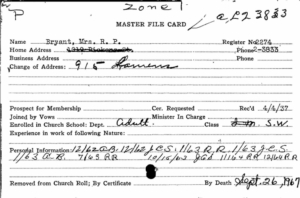 Zone 1
P
MASTER FILE CARD
a L2 3833
Name Bryant, Mrs. R. P. Register No 2274
Home Address Phone 2-3833
Business Address Phone
Change of Address: 915
Prospect for Membership Cer. Requested Rec'd 4/4/37
Joined by Vows Minister In Charge
Enrolled in Church School: Dept. Adult Class S.W.
Experience in work of following Nature:
Personal Information: 12/62 a.B. 12/62 J.C.S. 1/63 R.R. 1/63 J.C.S.
1/63 a.B. 7/63 RR 10/15/63 11/64 RR 12/64 RR
Removed from Church Roll; By Certificate By Death Sept. 26, 1967